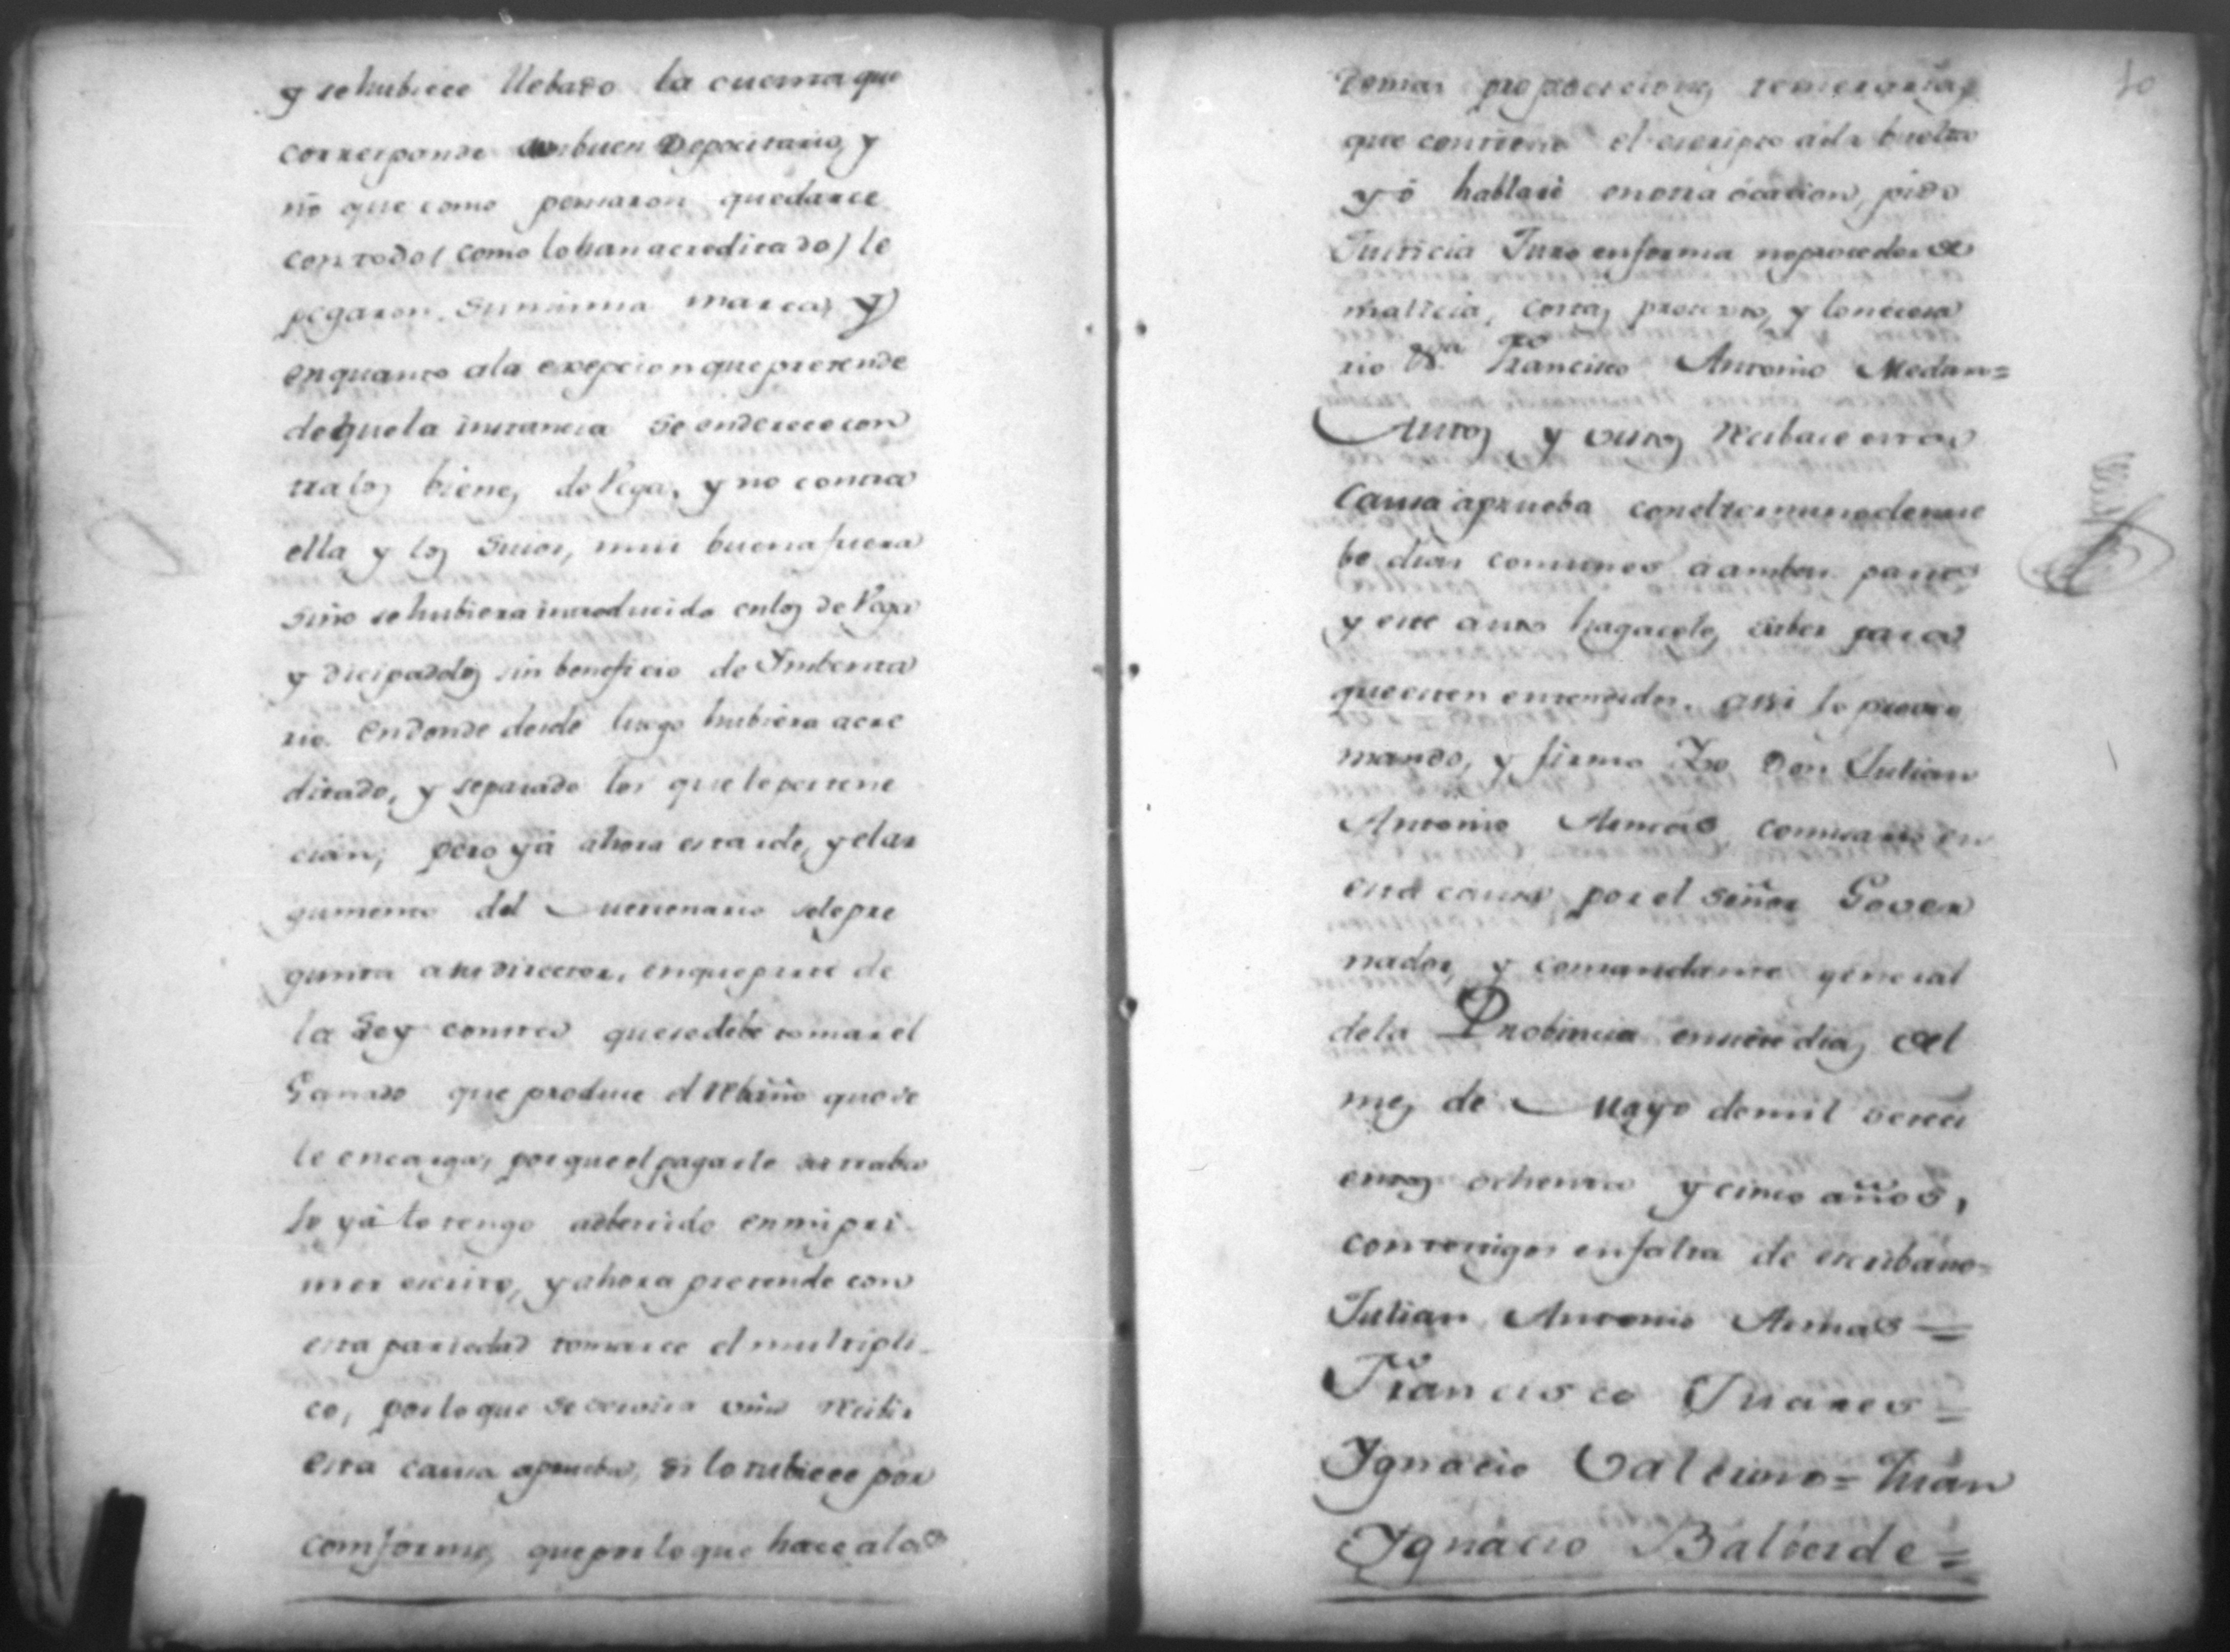 y se hubiece llebado la cuenta que
corresponde a un buen Depocitario, y
nō que como pensaron quedarce
con todo (como lo han acreditado) le
pegaron su misma marca, y
en quanto a la exepcion que pretende
de que la instancia se enderece con
tra los bienes de Vega, y no contra
ella y los suios, mui buena fuera
sino se hubiera introducido en los de Vega
y dicipadolos sin beneficio de Imbenta
rio. en donde desde luego hubiera acre
ditado, y separado los que le pertene
cian; pero yá ahora es tarde, y el ar
gumento del se le pre
gunta a su director, en que parte de
la Ley consta que se debe tomar el
Ganado que produce el rebaño que se
le encarga, porque el pagarle su traba
jo yá lo tengo adbertido en mi pri-
mer escrito, y ahora pretende con
esta pariedad tomarce el multipli-
co, por lo que se servira vmd recibir
esta causa aprueba, si lo tubiece por
comforme, que por lo que hace a las
demas propociciones temerarias
que contiene el escripto a la buelta
yó hablaré en otra ócacion, pido
Justicia Juro en forma no proceder de
malicia, costas, protesto, y lo necesa
rio Francisco Antonio Medan=
Autos y vistos recibace esta
causa aprueba con el termino de nue
be dias comunes a ambas partes
y este auto hagacele saber para
que esten entendidos. assi lo probeo
mando, y firmo Yo Don Julian
Antonio Armas comisario en
esta causa por el señor Gover
nador, y comandante general
de la Probincia en siete dias del
mes de Mayo de mil setesi
entos ochenta y cinco años,
con testigos en falta de escribano=
Julian Antonio Armas=
Francisco Juares=
Ygnacio =Juan
Ygnacio Balverde=